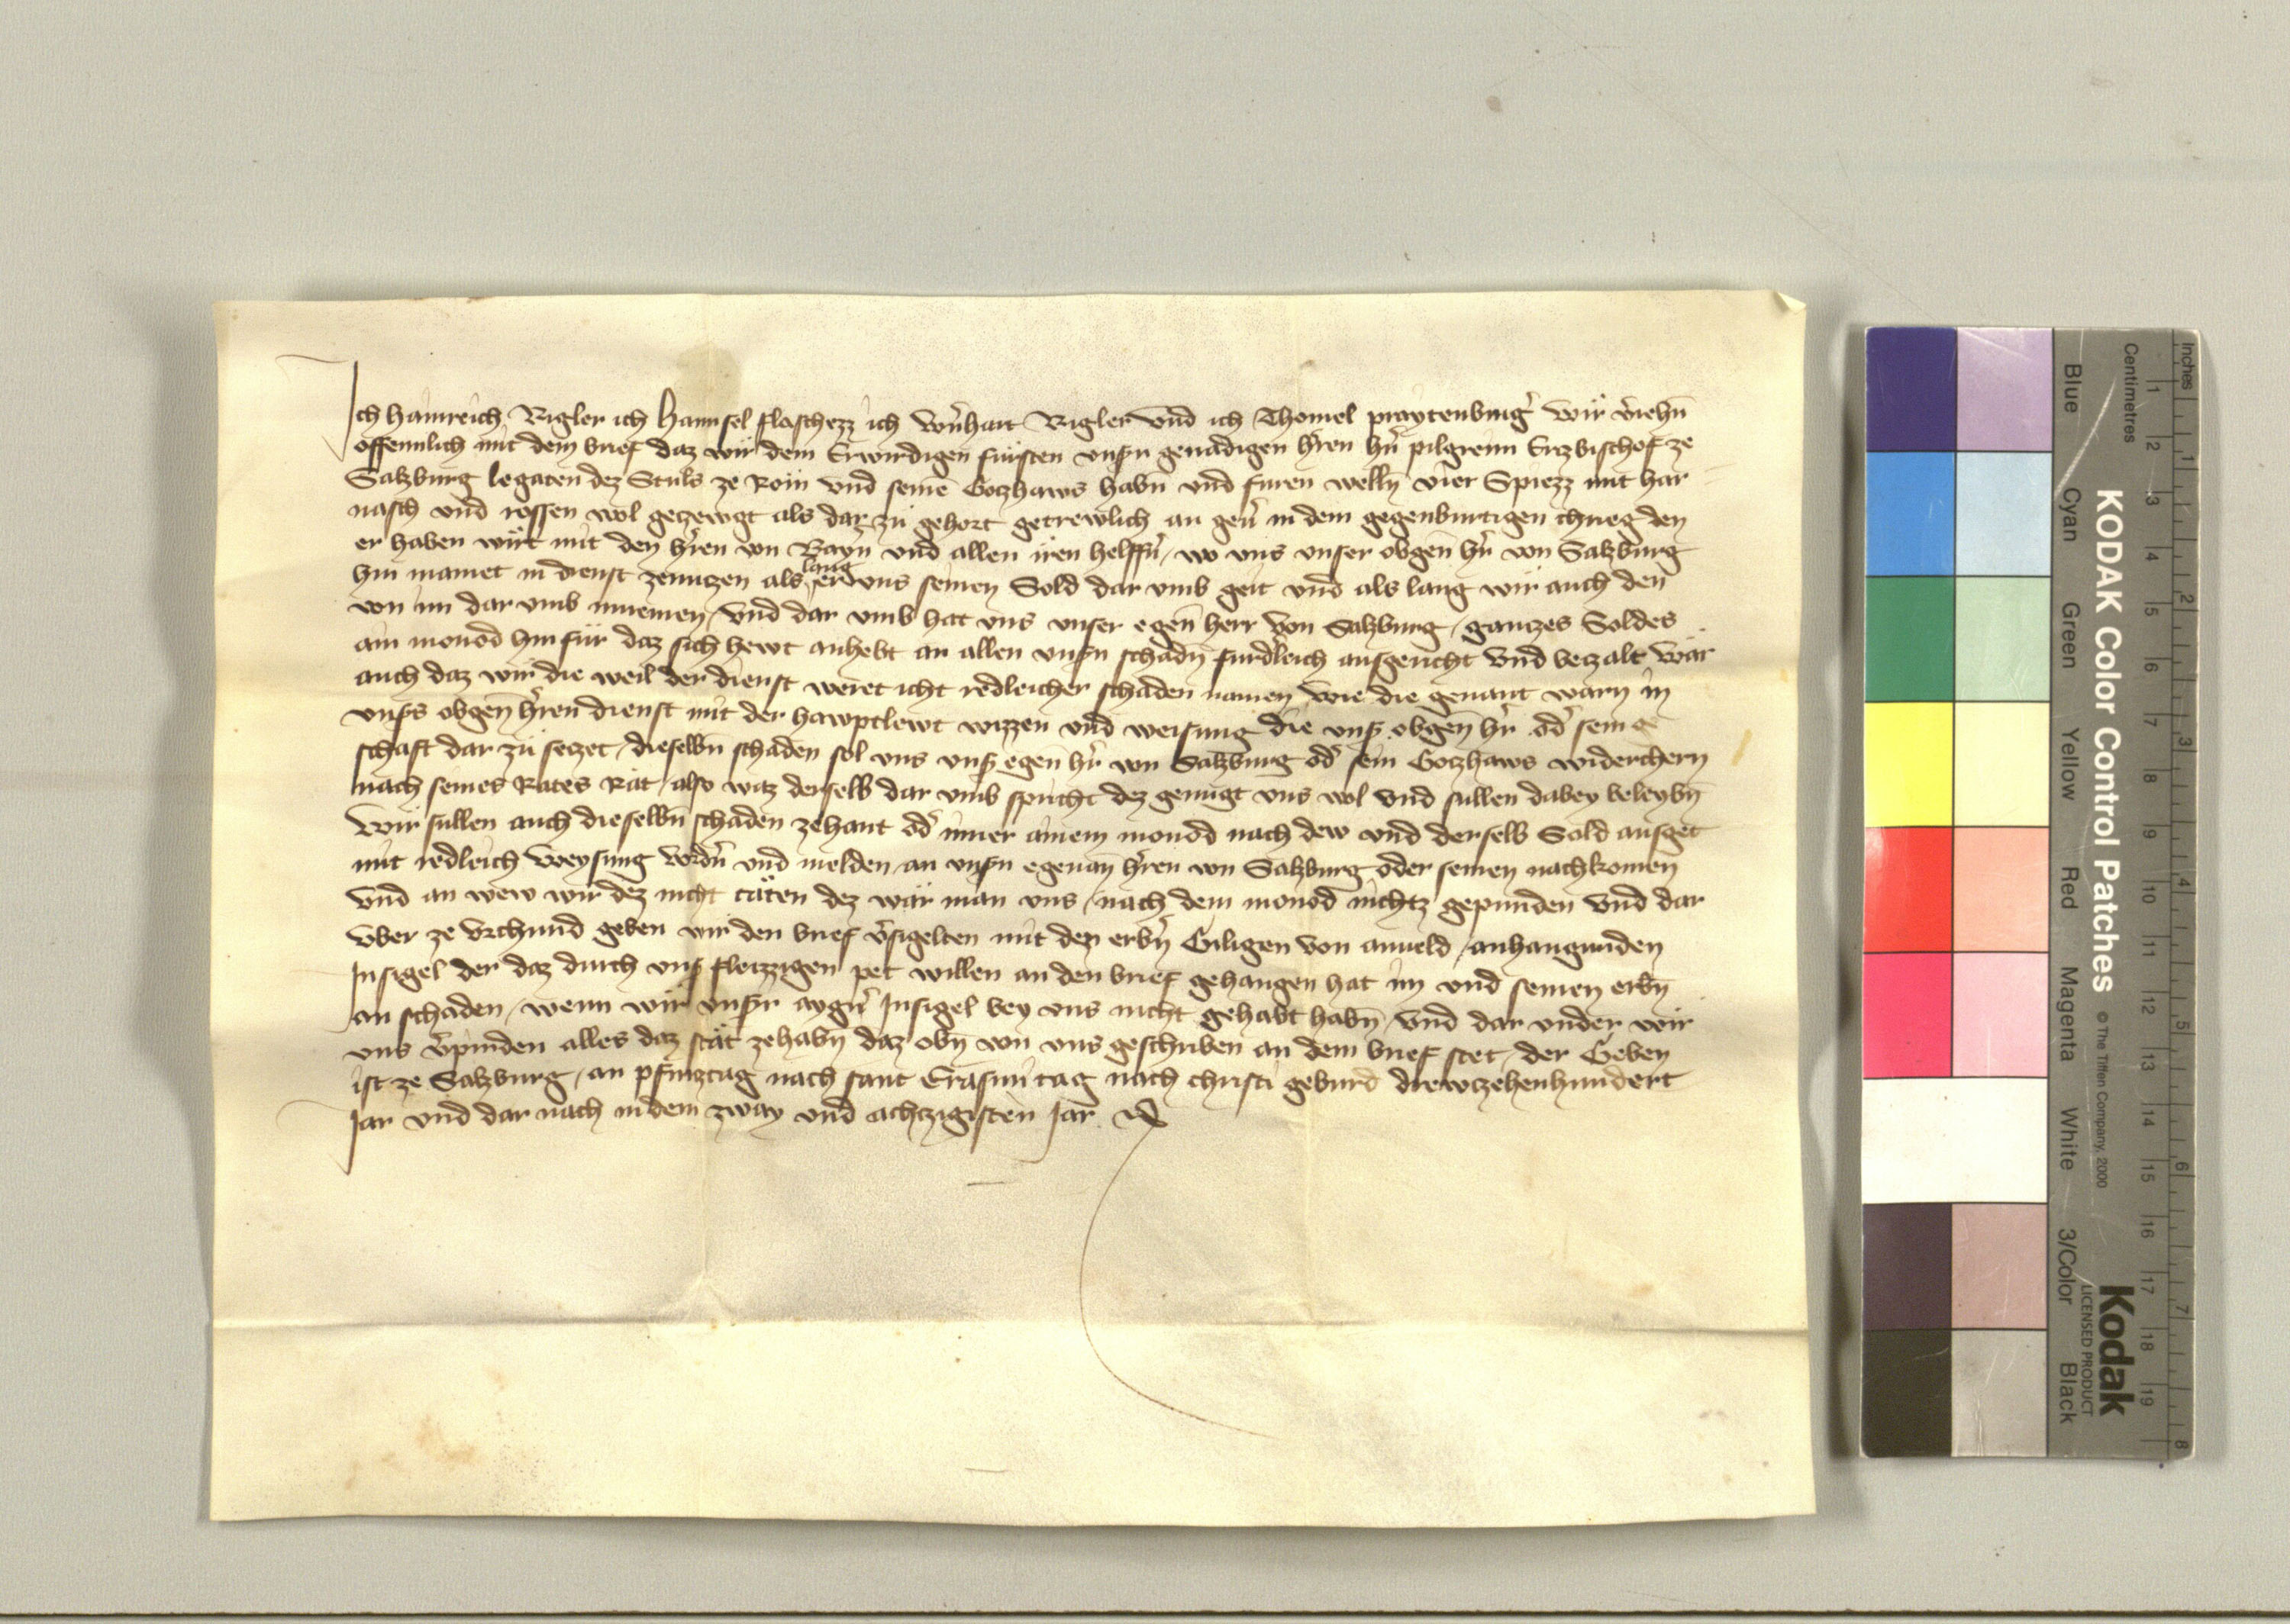 Ich Hainreich Rigler ich Hannsel flaschezz ich Wernhart Rigler vnd ich Thomel praytenbuger wir veriehn
offennlich mit dem brief daz wir dem Erwirdigen fürsten vnsern genadigen hren hrn pilgreim Erzbischof ze
Salzburg legaten dez Stuls ze Rom vnd seine Gotzhaws habn vnd furen welln vier Spiezz mit har
nasch vnd rossen wol getzewgt als dar zu gehort getrewlich an geuer in dem gegenburtigen chrieg den
er haben wirt mit den hren von Bayrn vnd allen iren helffrn wo vns vnser obgen hr von Salzburg
hin mainet in dienst zenutzen als lang er vns seinen Sold dar vmb geit vnd als lang wir auch den
von im dar vmb innemen / vnd dar vmb hat vns vnser egen herr von Salzburg / gantzes Soldes
ain monod hin für daz sich hewt anhebt an allen vnsern schadn furderleich ausgericht vnd betzalt wär
auch daz wir die weil der dienst weret icht redleicher schaden namen wie die genant warn in
vnsers obgen hren dienst mit der hawptlewt wizzen vnd weisung die vnser obgen hr oder sein ge
schaft dar zu setzet / dieselbn schaden sol vns vnser egen hr von Salzburg oder sein Gotzhaws widerchern
nach seines Rates Rat / also waz derselb dar vmb spricht dez genugt vns wol vnd sullen dabey beleybn
Wir sullen auch dieselbn schaden zehant oder inner ainem monod nach dew vnd derselb Sold ausget
mit redleich weysung vordern vnd melden an vnsern egenan hren von Salzburg oder seinen nachkomen
vnd an wew wir dez nicht täten dez wär man vns / nach dem monod nichtz gepunden vnd dar
vber ze vrchund geben wir den brief versigelten mit den erbern Giligen von anueld / anhangunden
Insigel der daz durch vnser fleizzigen pet willen an den brief gehangen hat im vnd seinen erbn
an schaden / wenn wir vnsrr aygner Insigel bey vns nicht gehabt habn / vnd dar vnder wir
vns verpinden alles daz stät zehabn daz obn von vns geschriben an dem brief stet / der Geben
ist ze Salzburg / an pfintztag nach sant Erasm tag nach christi geburd drewtzehenhundert
Jar vnd dar nach in dem zway vnd achtzigisten Jar.
KODAK Color Control Patches © The Tiffen Company, 2000
Kodak
LICENSED PRODUCT
Inches 1 2 3 4 5 6 7 8
Centimetres 1 2 3 4 5 6 7 8 9 10 11 12 13 14 15 16 17 18 19
Blue Cyan Green Yellow Red Magenta White 3/Color Black